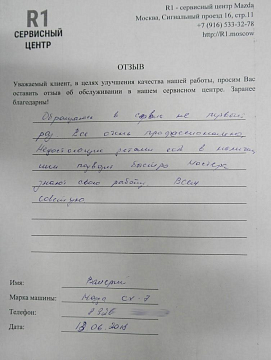 R1
СЕРВИСНЫЙ
ЦЕНТР
R1 - сервисный центр Mazda
Москва, Сигнальный проезд 16, стр.11
+7 (916) 533-32-78
http://R1.moscow
ОТЗЫВ
Уважаемый клиент, в целях улучшения качества нашей работы, просим Вас
оставить отзыв об обслуживании в нашем сервисном центре. Заранее
благодарны!
Обращаюсь в сервис не первый
раз. Все очень профессионально.
Недостающие детали есть в
быстро мастера
знают свою работу. Всем
советую
Имя: Валерий
Марка машины: Мазда СХ-7
Телефон: 8 926
Дата: 13.06.2018